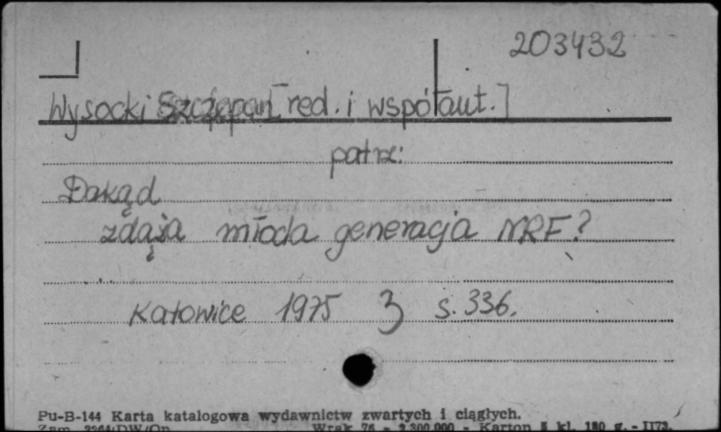 203432
Wysocki Szczepan [red. i współaut.]
patrz:
Dokąd
zdąża młoda generacja NRF?
Katowice 1975 3 s. 336.
Pu-B-144 Karta katalogowa wydawnictw zwartych i ciągłych.
Zam. DW/Op. Wrak 76 - 2.300.000 - Karton kl. 180 g. - II73.